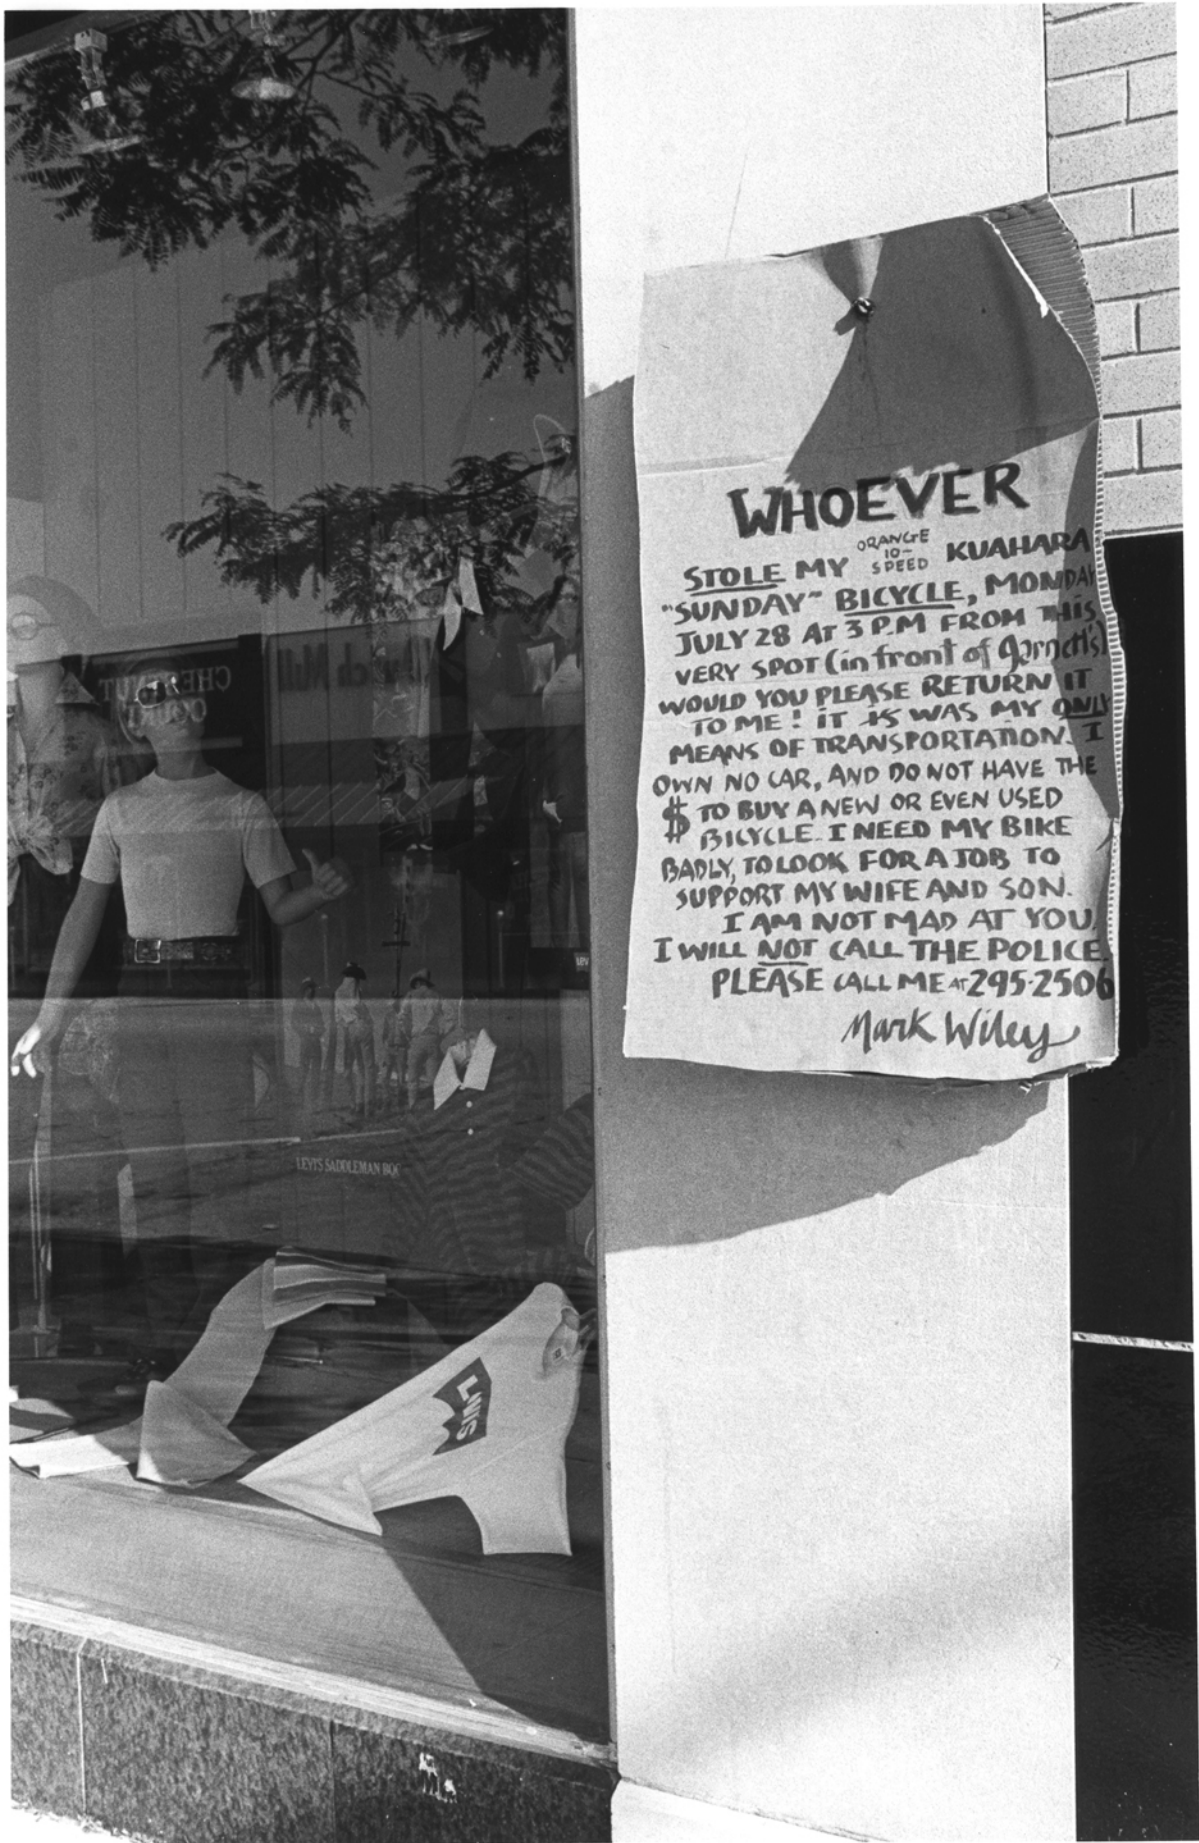 CHESTNUT
COURT
LEVI'S SADDLEMAN BOO
LEVI'S
WHOEVER
STOLE MY ORANGE 10-SPEED KUAHARA
"SUNDAY" BICYCLE, MONDAY
JULY 28 AT 3 P.M FROM THIS
VERY SPOT (in front of Garnett's)
WOULD YOU PLEASE RETURN IT
TO ME! IT IS WAS MY ONLY
MEANS OF TRANSPORTATION. I
OWN NO CAR, AND DO NOT HAVE THE
$ TO BUY A NEW OR EVEN USED
BICYCLE. I NEED MY BIKE
BADLY, TO LOOK FOR A JOB TO
SUPPORT MY WIFE AND SON.
I AM NOT MAD AT YOU.
I WILL NOT CALL THE POLICE.
PLEASE CALL ME AT 295-2506
Mark Wiley